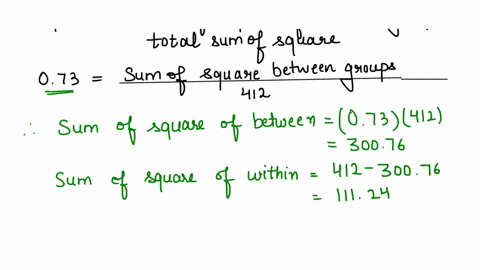 total sum of square
0.73 = Sum of square between groups
412
∴ Sum of square of between = (0.73)(412)
= 300.76
Sum of square of within = 412 - 300.76
= 111.24